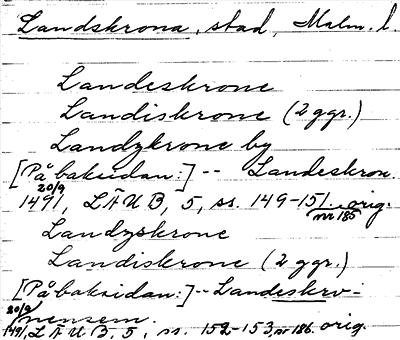 Landskrona, stad, Malm. l.
Landeskrone
Landiskrone (2 ggr.)
Landzkrone by
[På baksidan:] -- Landeskron.
20/9 1491, LÄUB, 5, ss. 149-151 nr 185 orig.
Landzskrone
Landiskrone (2 ggr.)
[På baksidan:] -- Landeskro-
nensem.
20/9 1491, LÄUB, 5, ss. 152-153, nr 186. orig.